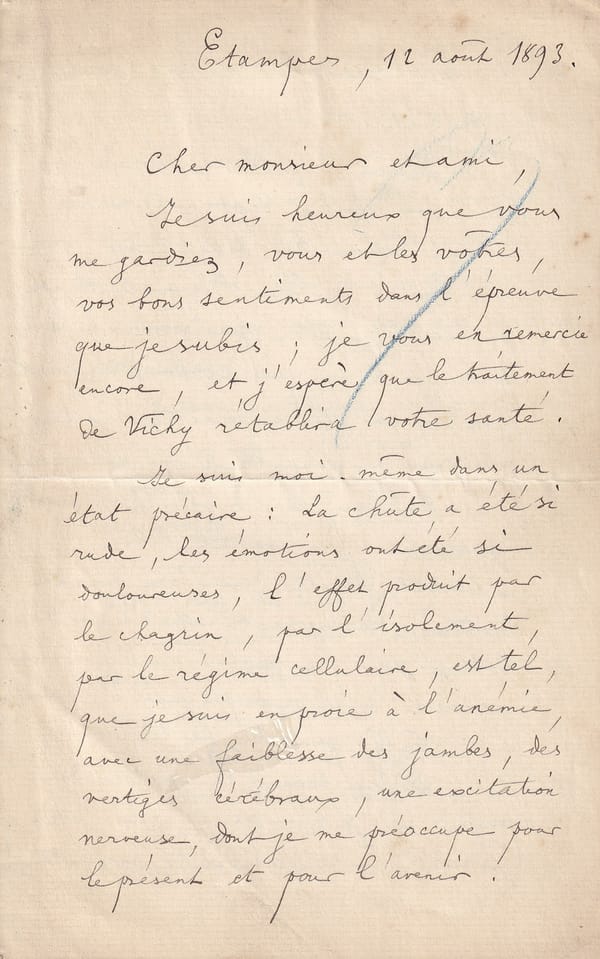 Etampes, 12 août 1893.
Cher monsieur et ami,
Je suis heureux que vous
me gardiez, vous et les vôtres,
vos bons sentiments dans l'épreuve
que je subis ; je vous en remercie
encore, et j'espère que le traitement
de Vichy rétablira votre santé.
Je suis moi-même dans un
état précaire : La chûte a été si
rude, les émotions ont été si
douloureuses, l'effet produit par
le chagrin, par l'isolement,
par le régime cellulaire, est tel,
que je suis en proie à l'anémie,
avec une faiblesse des jambes, des
vertiges cérébraux, une excitation
nerveuse, dont je me préoccupe pour
le présent et pour l'avenir.